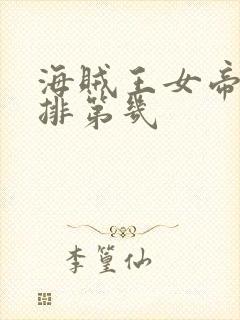 海贼王女帝
排第几
李篁仙